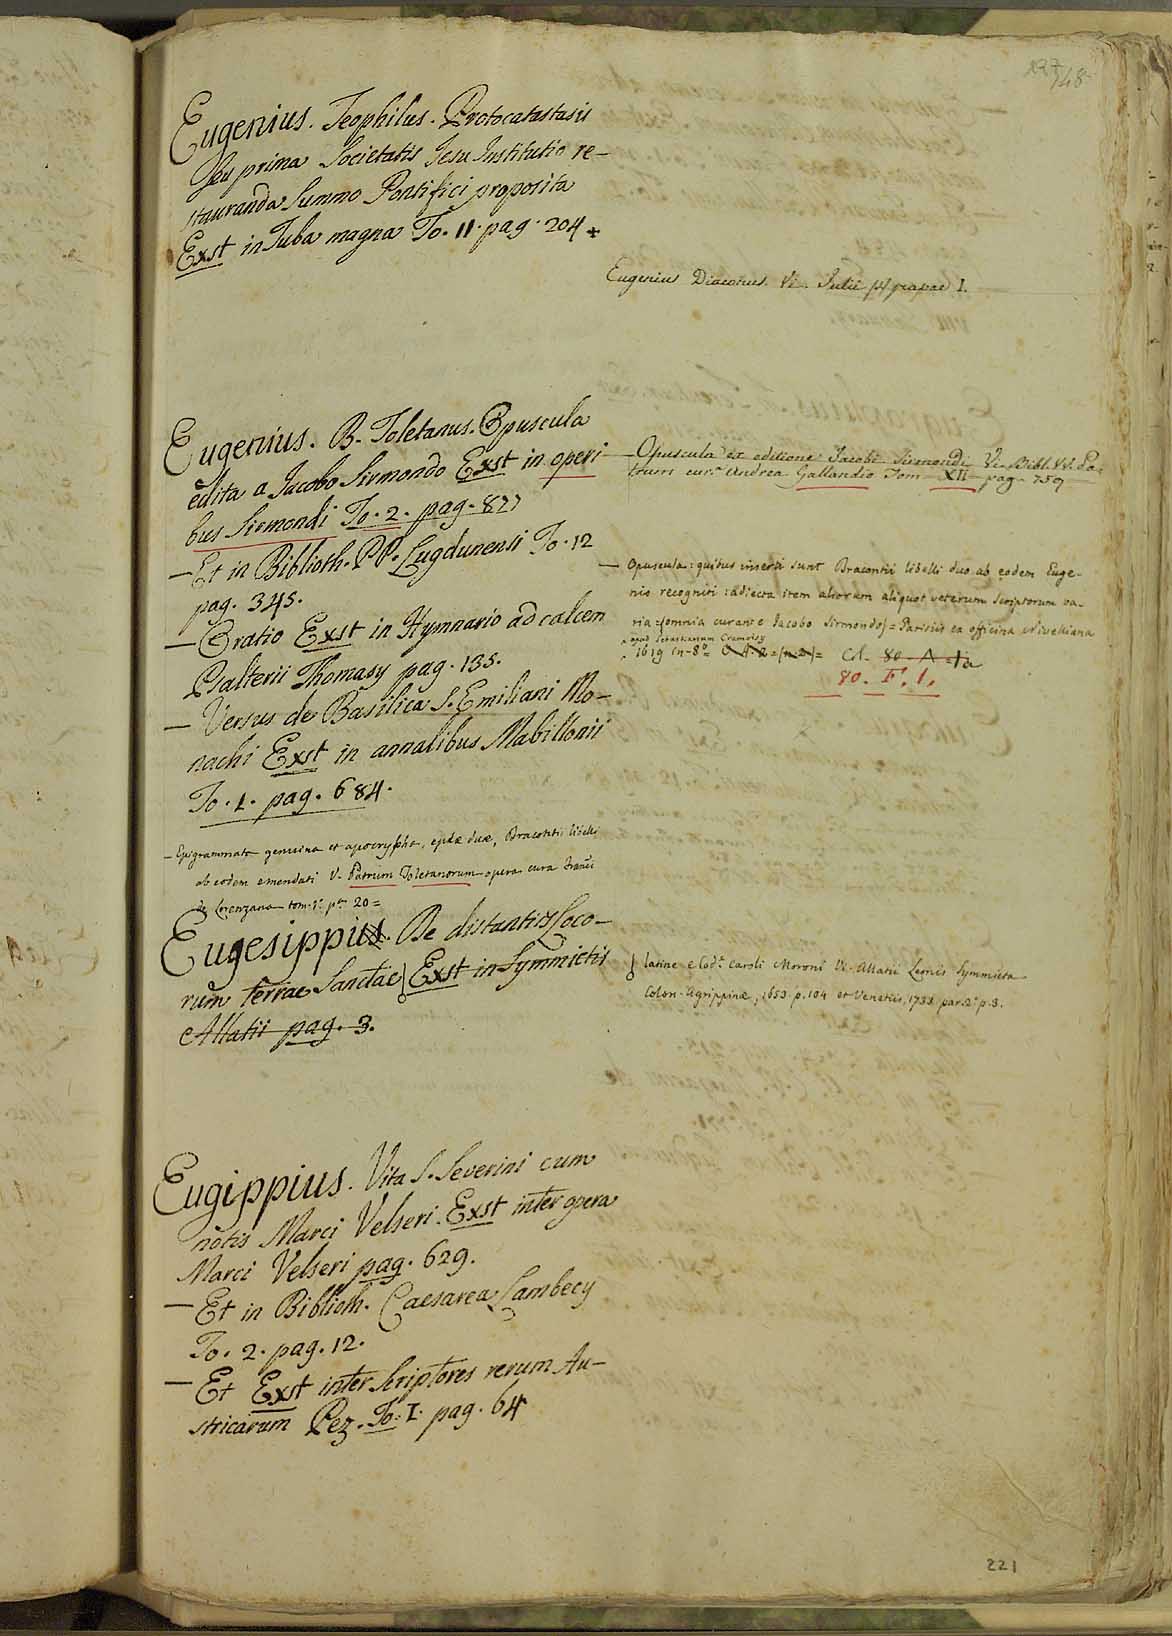 148
Eugenius. Teophilus. Protocatastasis
seu prima Societatis Jesu Institutio re-
stauranda Summo Pontifici proposita
Exst in Tuba magna To. II. pag. 204 +
Eugenius Diaconus. V. Julii papae I.
Eugenius. B. Toletanus. Opuscula
edita a Jacobo Sirmondo Exst in operi
bus Sirmondi To. 2. pag. 877
— Et in Biblioth. PP. Lugdunensi To. 12
pag. 345.
— Oratio Exst in Hymnario ad calcem
Psalterii Thomasy pag. 135.
— Versus de Basilica S. Emiliani Mo-
nachi Exst in annalibus Mabillonii
To. 1. pag. 684.
— Epigrammata genuina et apocrypha, eplae duae, Dracontii libelli
ab eodem emendati V. Patrum Toletanorum opera cura Franci
de Lorenzana tom. 1º p. 20 =
— Opuscula ex editione Jacobi Sirmondi V. Bibl. VV. Pa-
trum cura Andrea Gallandio Tom. XII pag. 759
— Opuscula: quibus inserti sunt Dracontii libelli duo ab eodem Euge-
nio recogniti: adiecta item aliorum aliquot veterum scriptorum va-
ria (omnia curante Jacobo Sirmondo) = Parisiis ex officina Nivelliana
apud Sebastianum Cramoisy
1619 in-8º = Col. 80. A
80. F. 1.
Eugesippus. De distantiis Loco-
rum terrae Sanctae Exst in Symmictis
Allatii pag. 3.
latine e Cod. Caroli Moroni V. Allatii Leonis Symmicta
Colon. Agrippinae, 1653 p. 104 et Venetiis, 1733 par. 2ª p. 3.
Eugippius. Vita S. Severini cum
notis Marci Velseri. Exst inter opera
Marci Velseri pag. 629.
— Et in Biblioth. Caesarea Lambecy
To. 2. pag. 12.
— Et Exst inter Scriptores rerum Au-
stricarum Pez. To. I. pag. 64
221